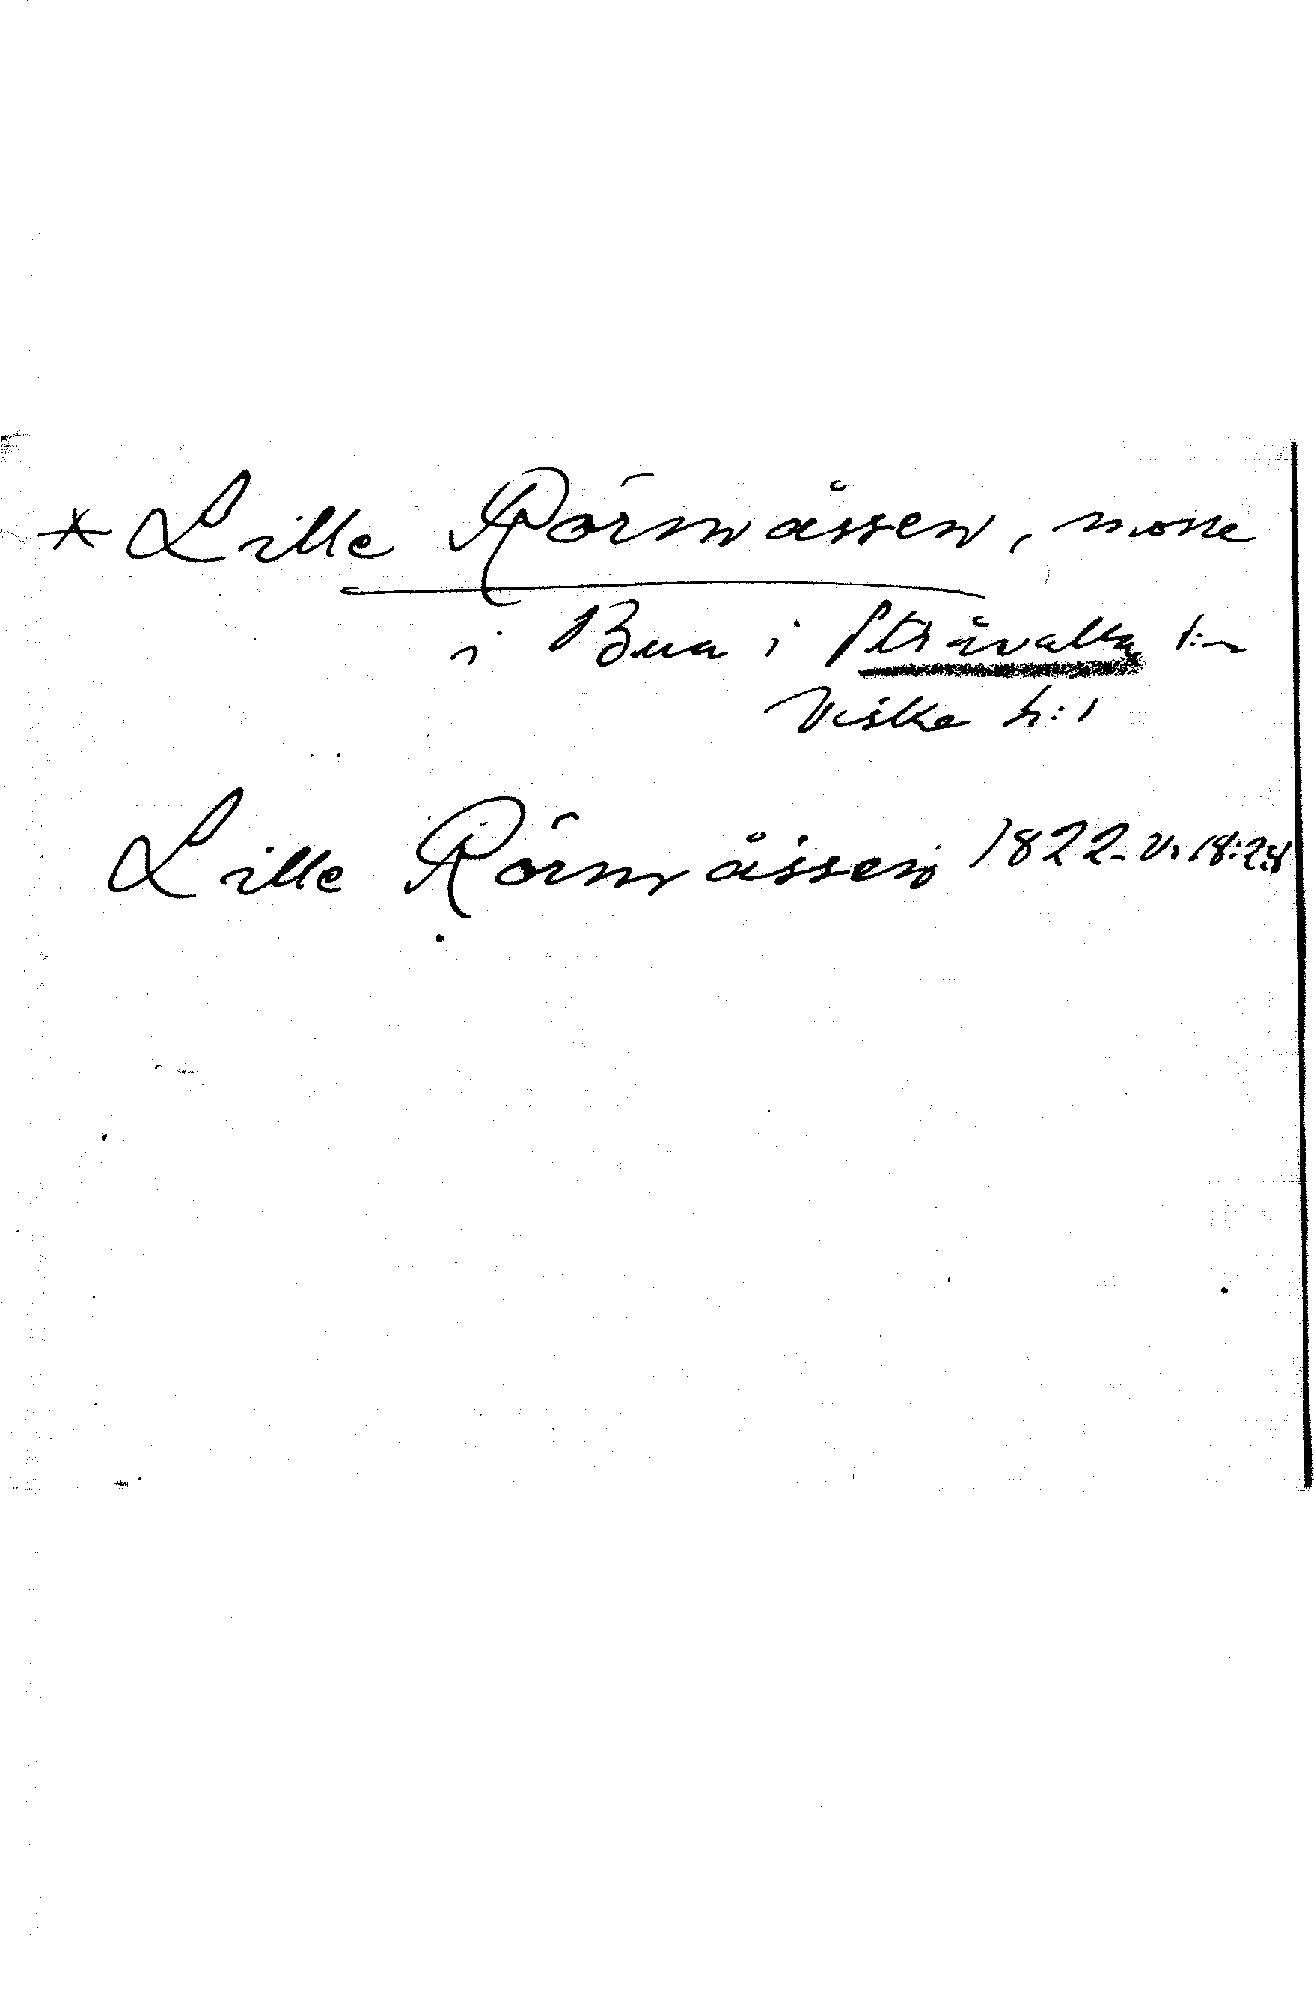 * Lille Rörmåssen, mosse
i Bua i Stråvalla s:n
Viske h:d
Lille Rörmåssen 1822 - V. 18:28